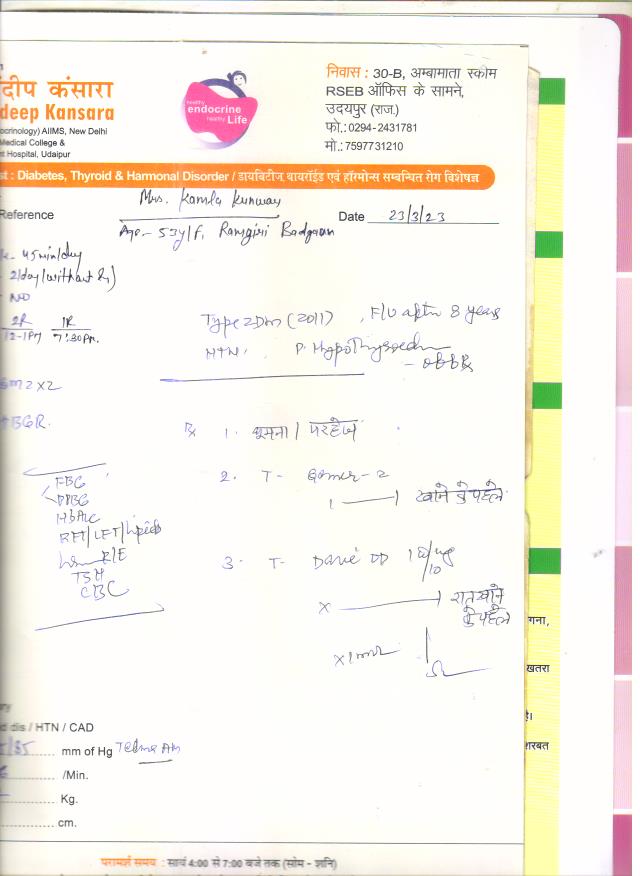 दीप कंसारा
deep Kansara
ocrinology) AIIMS, New Delhi
Medical College &
t Hospital, Udaipur
healthy
endocrine
healthy Life
निवास : 30-B, अम्बामाता स्कीम
RSEB ऑफिस के सामने,
उदयपुर (राज.)
फो.:0294-2431781
मो.:7597731210
st : Diabetes, Thyroid & Harmonal Disorder / डायबिटीज, थायरॉईड एवं हॉरमोन्स सम्बन्धित रोग विशेषज्ञ
Mrs. Kamla Kunwar
Reference
Date 23/3/23
Age - 53y/F, Ramgiri Badgaon
45min/day
2/day (without
NO
2R 1R
12-1PM 7:30PM
Type 2 DM (2011) , F/U after 8 years
HTN, P. Hypothyroidism
GM2 x 2
Rx 1. घूमना / परहेज
2. T-
1 — 1 खाने के पहले
FBG
PPBG
HbA1c
RFT/LFT/Lipids
R/E
TSH
CBC
3. T- DD
/10
x — 1 रात खाने
के पहले
गना,
खतरा
है।
शरबत
ry
d dis / HTN / CAD
/85 mm of Hg Telma AM
/Min.
Kg.
cm.
परामर्श समय : सायं 4:00 से 7:00 बजे तक (सोम - शनि)